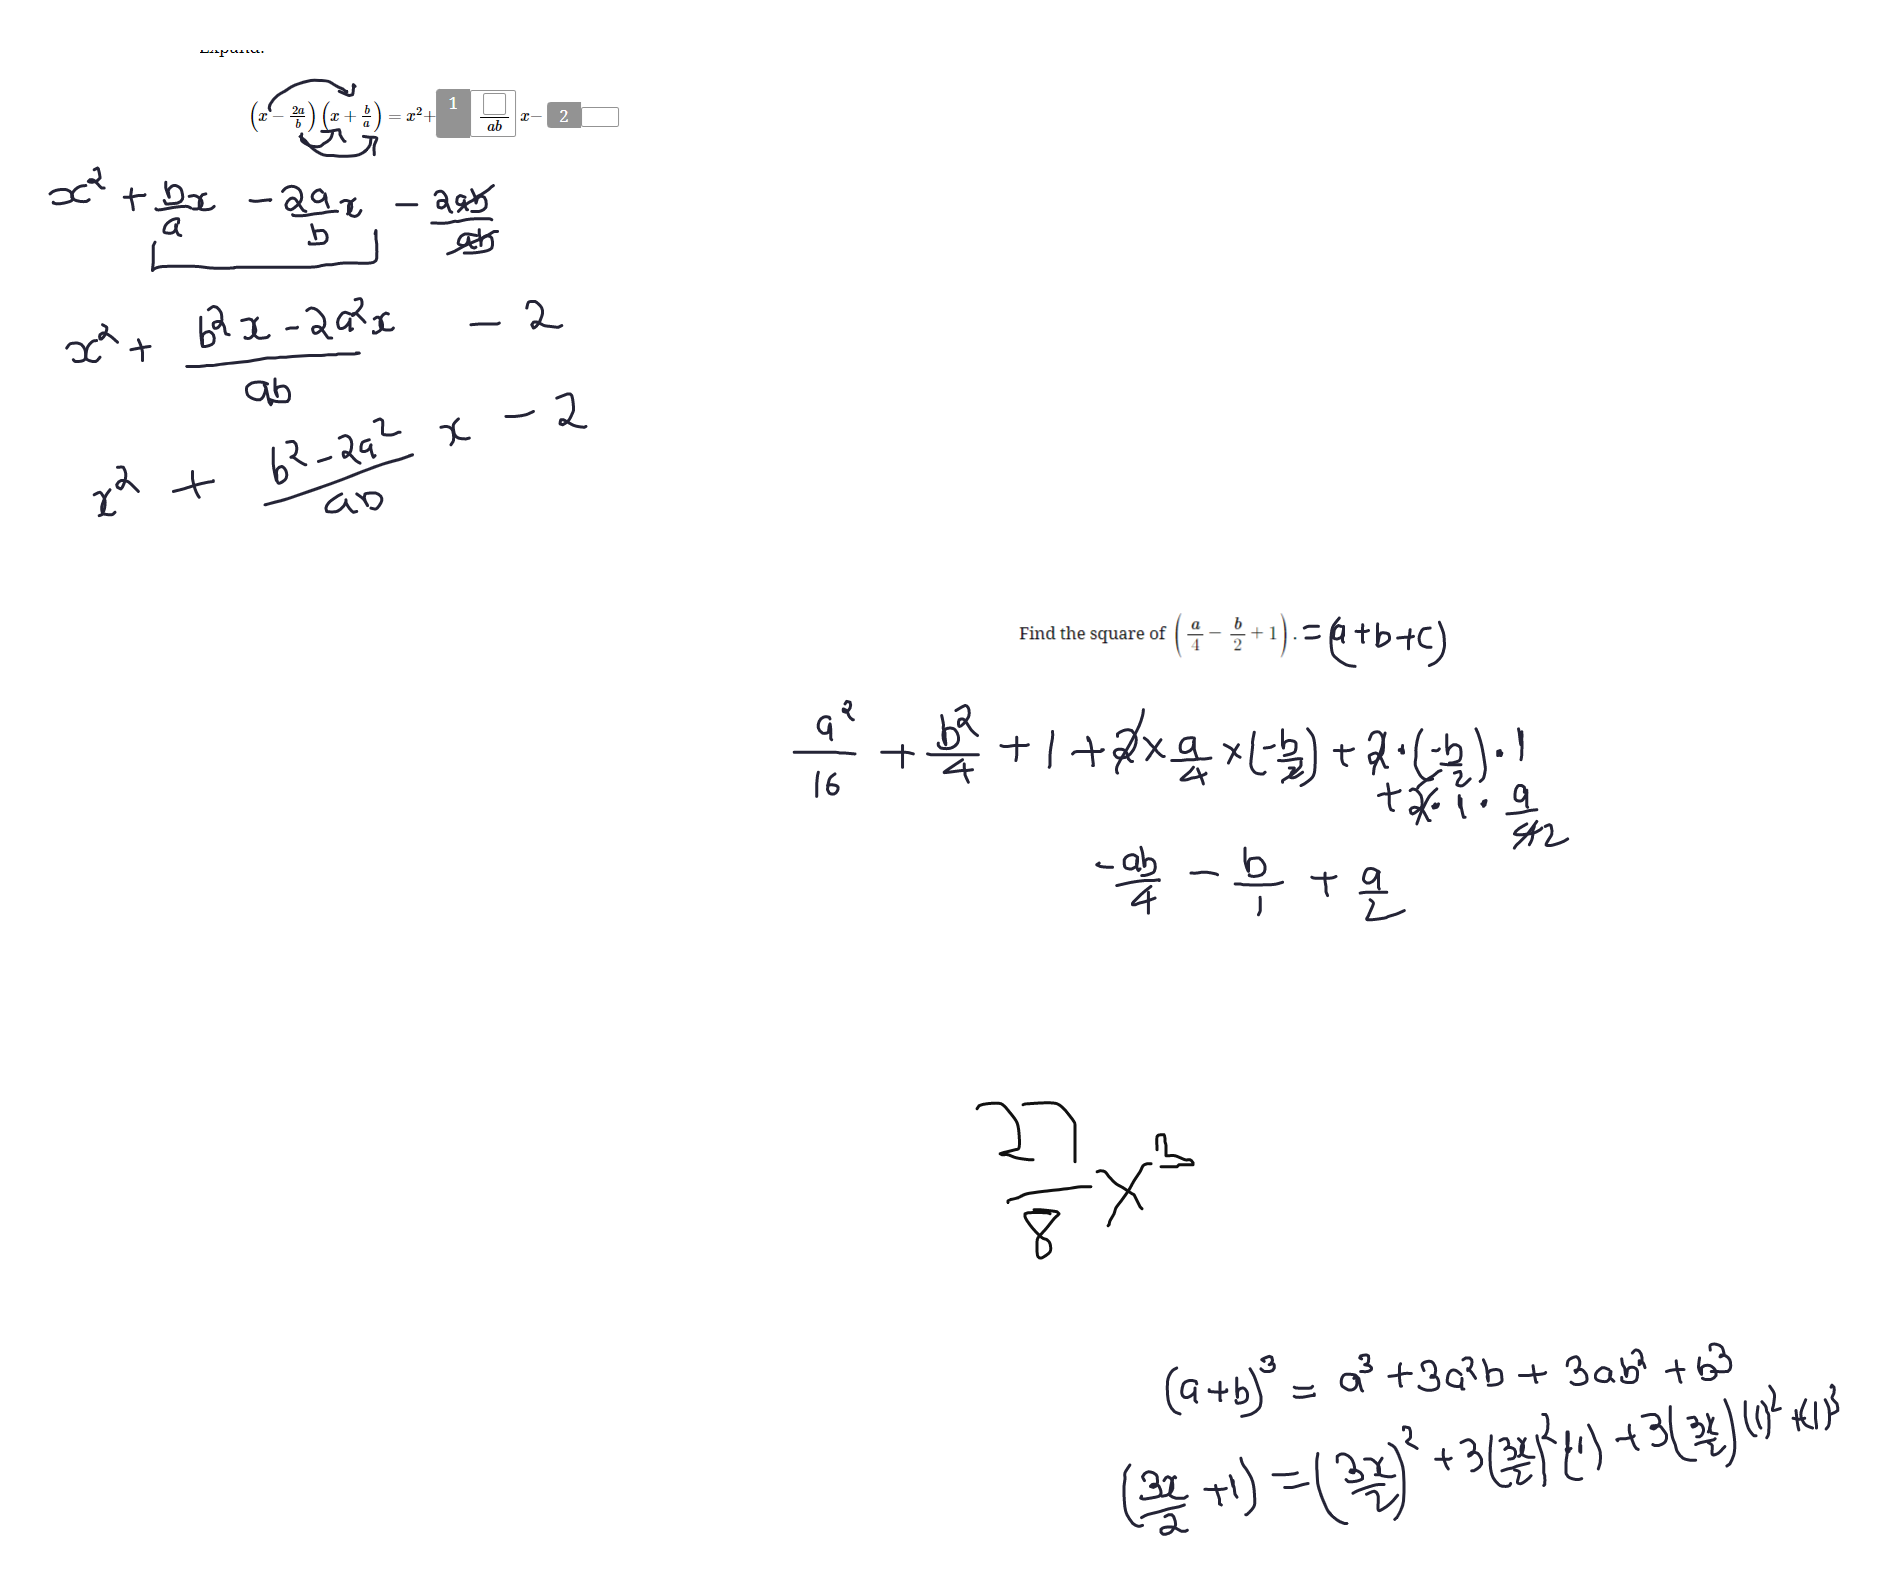 Expand:
(x − 2a/b)(x + b/a) = x² + 1 □/ab x − 2
x² + bx/a − 2ax/b − 2ab/ab
x² + (b²x − 2a²x)/ab − 2
x² + (b² − 2a²)/ab x − 2
Find the square of (a/4 − b/2 + 1). = (a+b+c)
a²/16 + b²/4 + 1 + 2 × a/4 × (−b/2) + 2·(−b/2)·1
+ 2·1·a/4 2
−ab/4 − b/1 + a/2
27/8 x²
(a+b)³ = a³ + 3a²b + 3ab² + b³
(3x/2 + 1) = (3x/2)² + 3(3x/2)²(1) + 3(3x/2)(1)² + (1)³